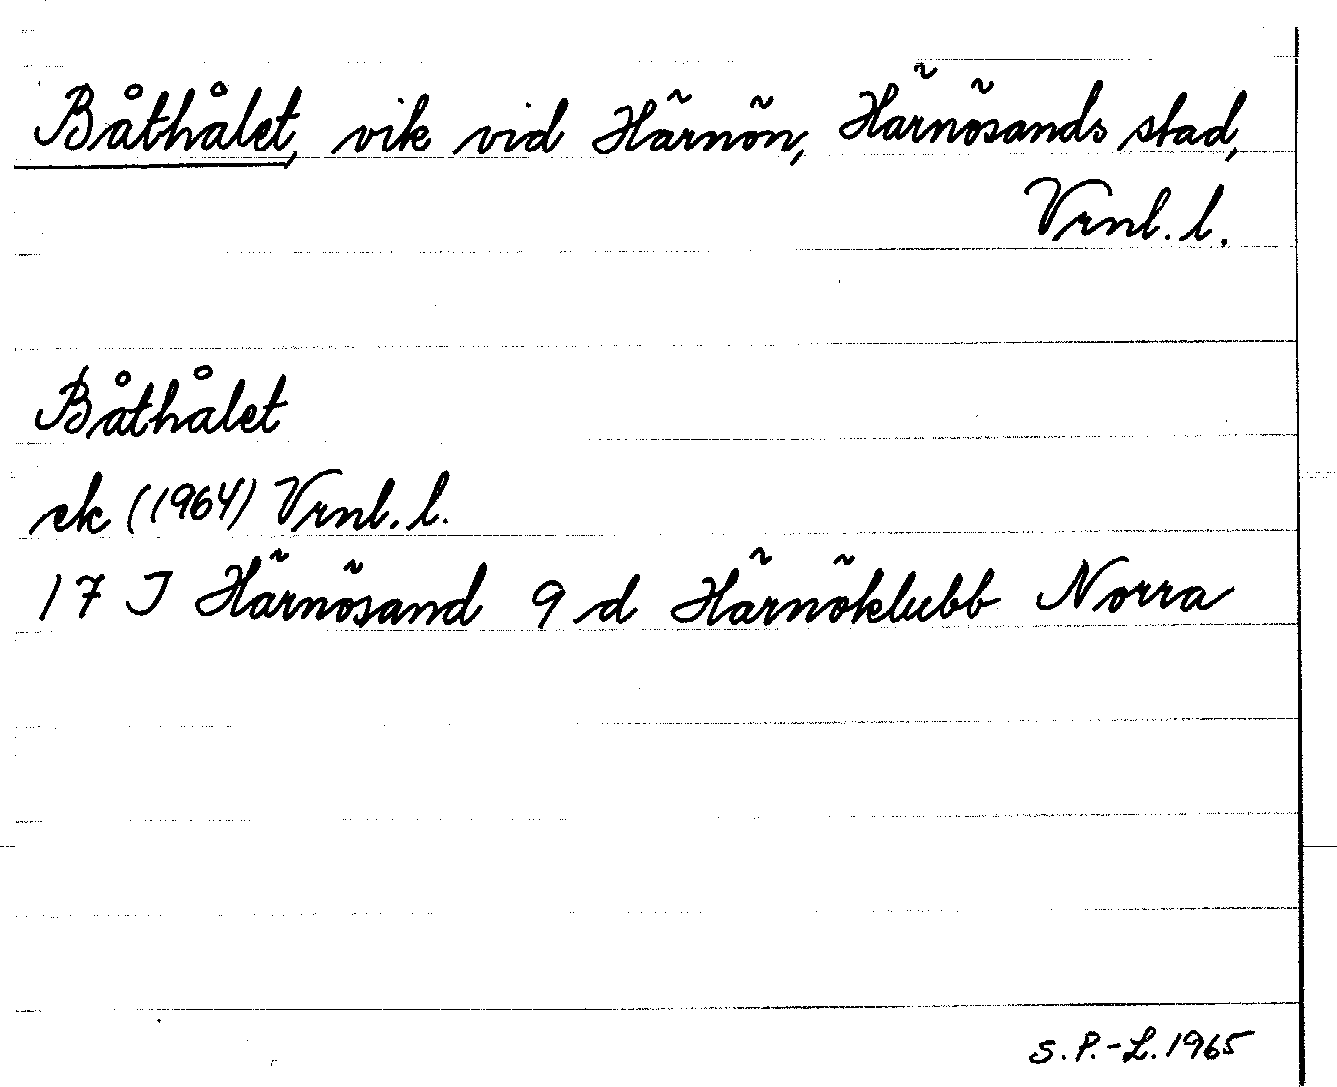 Båthålet, vik vid Härnön, Härnösands stad,
Vrnl. l.
Båthålet
ek (1964) Vrnl. l.
17 J Härnösand 9 d Härnöklubb Norra
S. P.-L. 1965